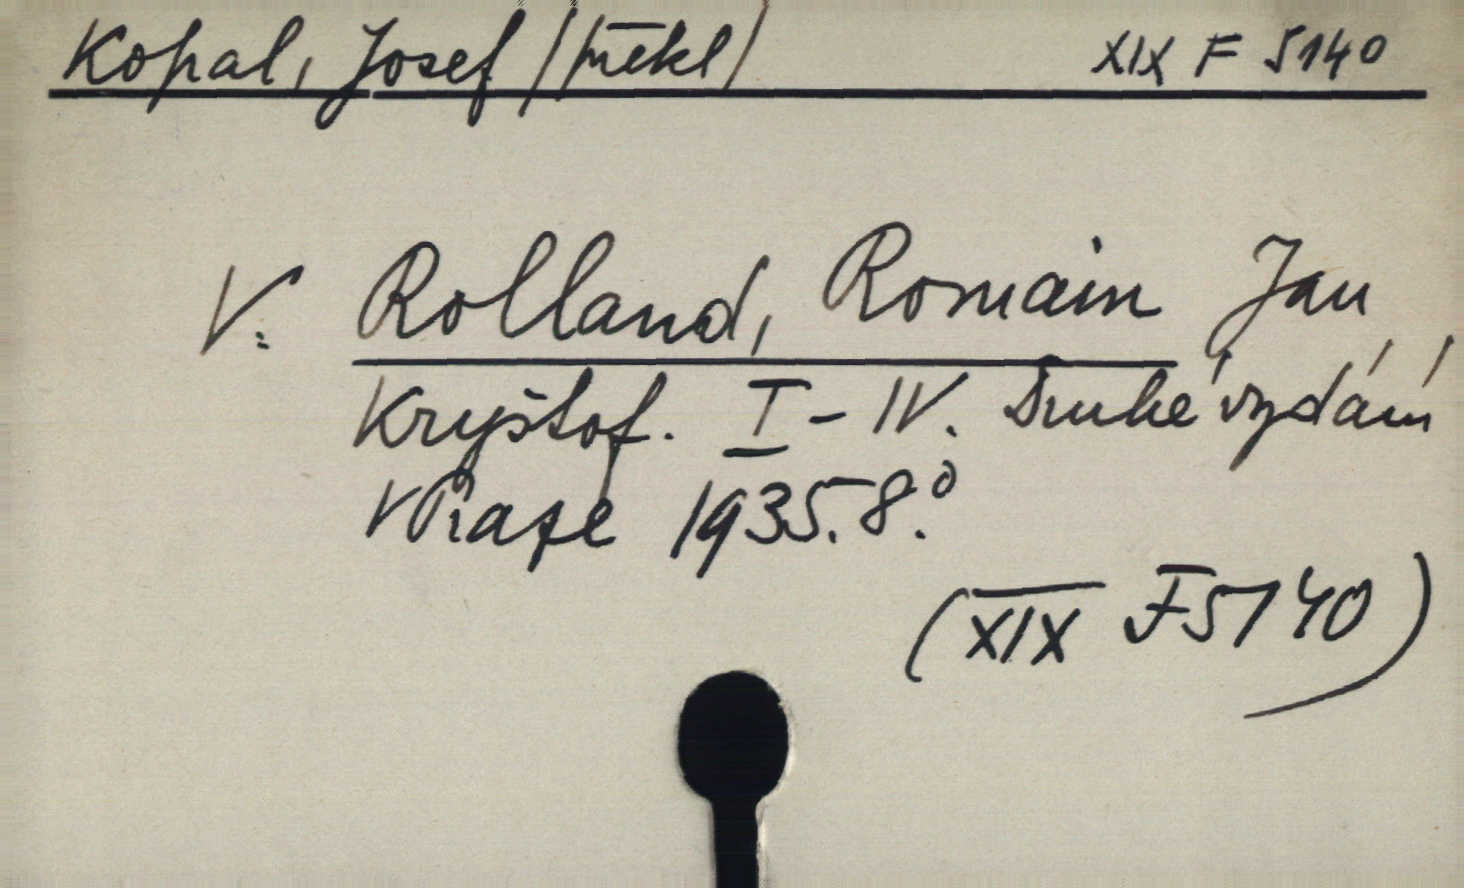 Kopal, Josef /překl/ XIX F 5140
V. Rolland, Romain Jan
Kryštof. I - IV. Druhé vydání
V Praze 1935. 8.°
(XIX F 5140)